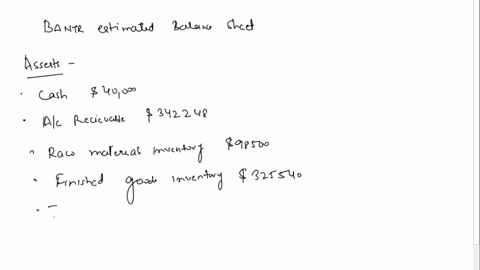 BANTR estimated Balance Sheet
Asserts -
· Cash $40,000
· A/c Recievable $342248
· Raw material Inventory $98500
· Finished goods inventory $325540
·